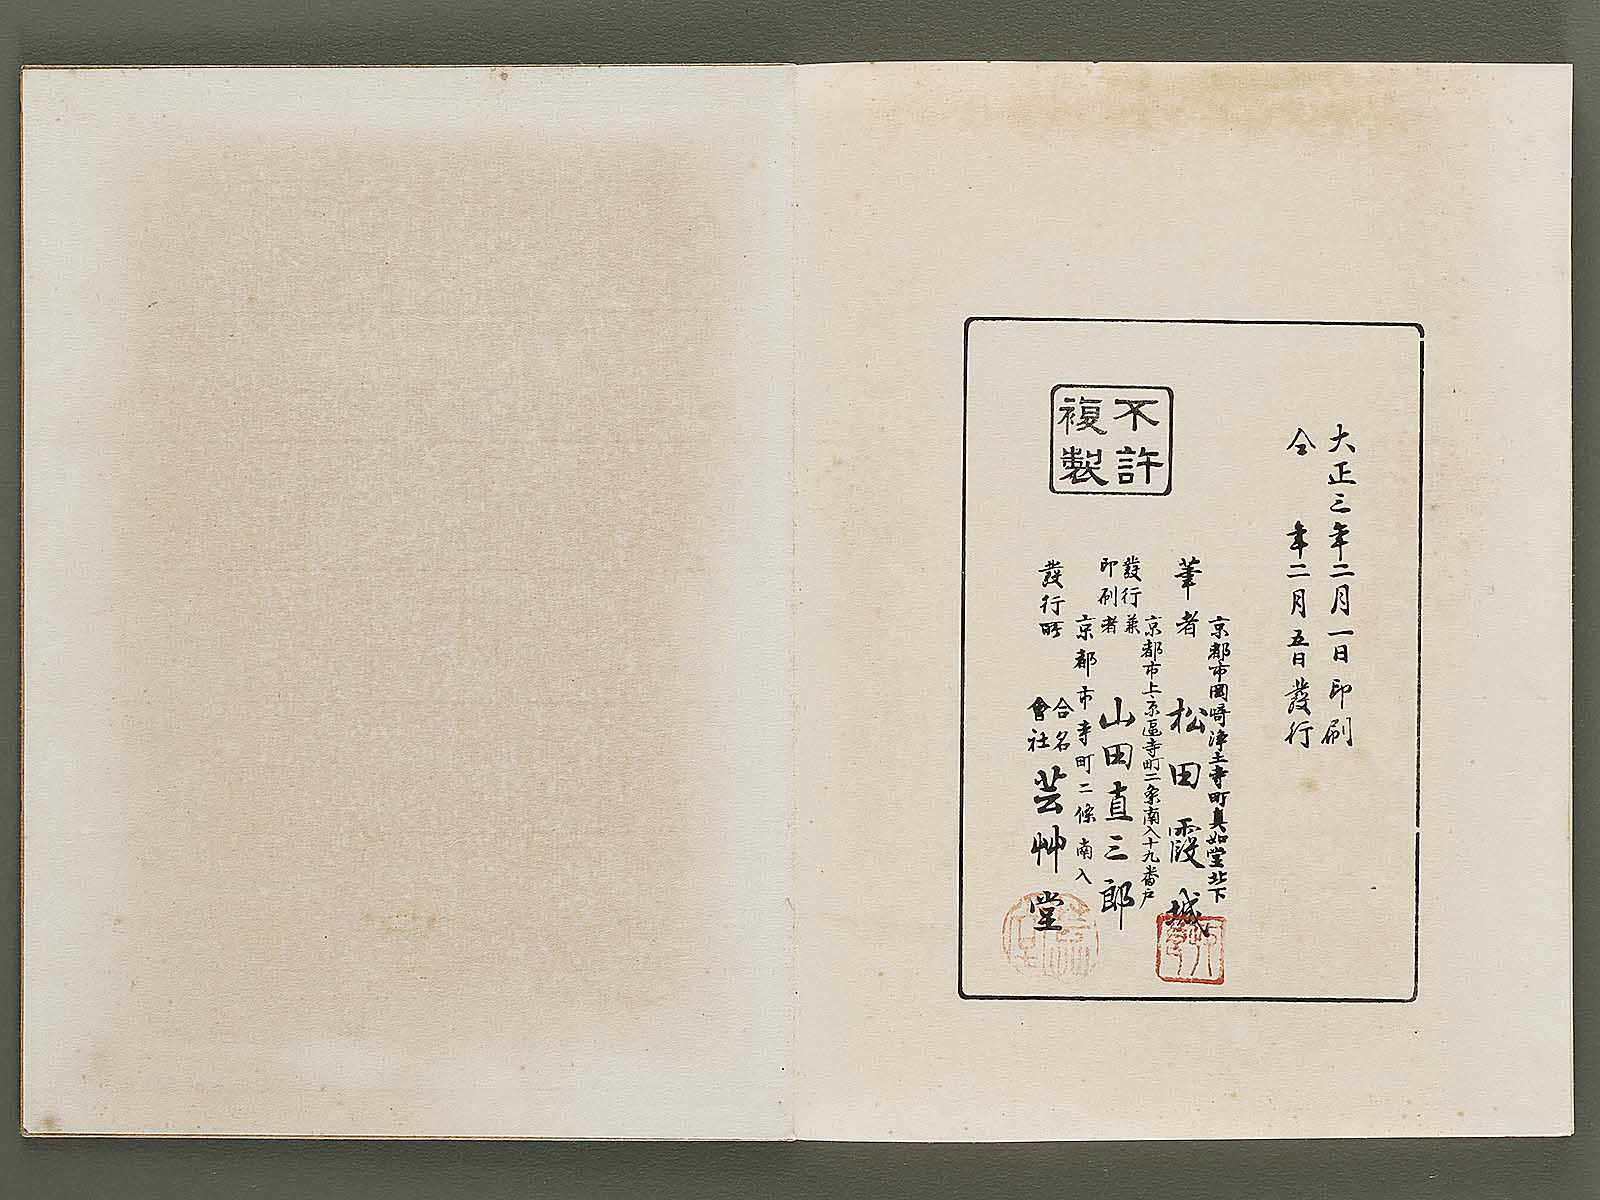 大正三年二月一日印刷
仝 年二月五日發行
不許
複製
京都市岡崎浄土寺町真如堂北下
筆者 松田霞城
京都市上京區寺町二条南入十九番戸
發行兼
印刷者 山田直三郎
京都市寺町二條南入
發行所 合名
會社 芸艸堂